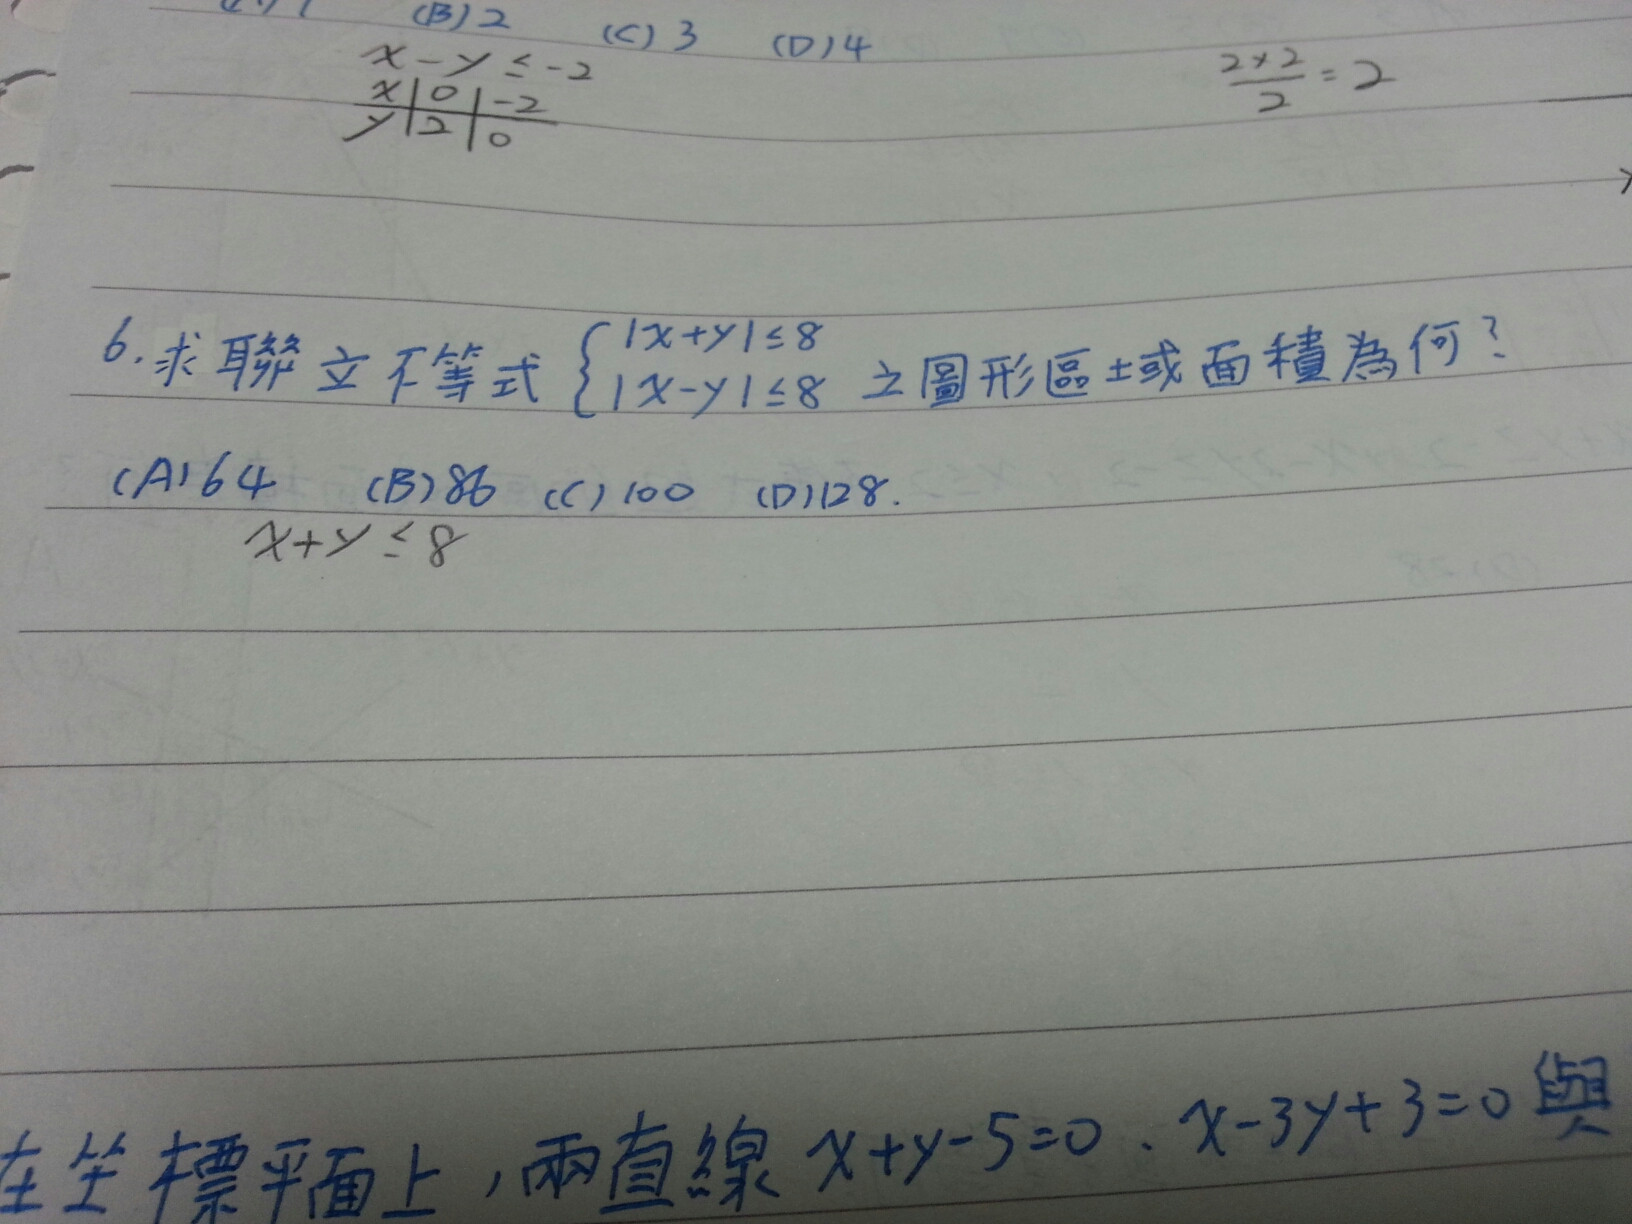 (B) 2 (C) 3 (D) 4
x - y ≤ -2
x | 0 | -2
y | 2 | 0
2×2/2 = 2
6. 求聯立不等式 { |x+y| ≤ 8
|x-y| ≤ 8 之圖形區域面積為何?
(A) 64 (B) 86 (C) 100 (D) 128.
x+y ≤ 8
在坐標平面上,兩直線 x+y-5=0、x-3y+3=0 與